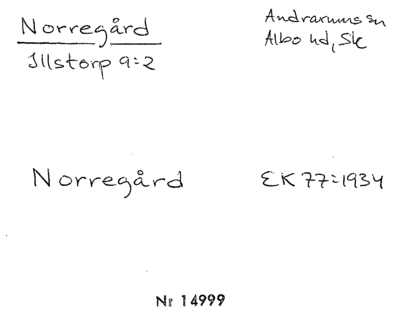 Norregård
Illstorp 9:2
Andrarums sn
Albo hd, Sk
Norregård
EK 77:1934
Nr 14999